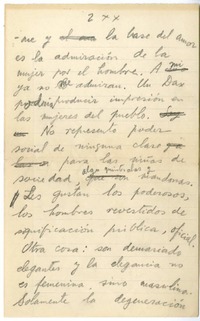 2 + x
-me y la base del amor
es la admiración de la
mujer por el hombre. A mi
ya no admiran. Un Dax
podría producir impresión en
las mujeres del pueblo.
— No represento poder
social de ninguna clase
para las niñas de
sociedad algo mundanas.
Les gustan los poderosos,
los hombres revestidos de
significación pública, oficial.
Otra cosa: son demasiado
elegantes y la elegancia no
es femenina sino masculina.
Solamente la degeneración